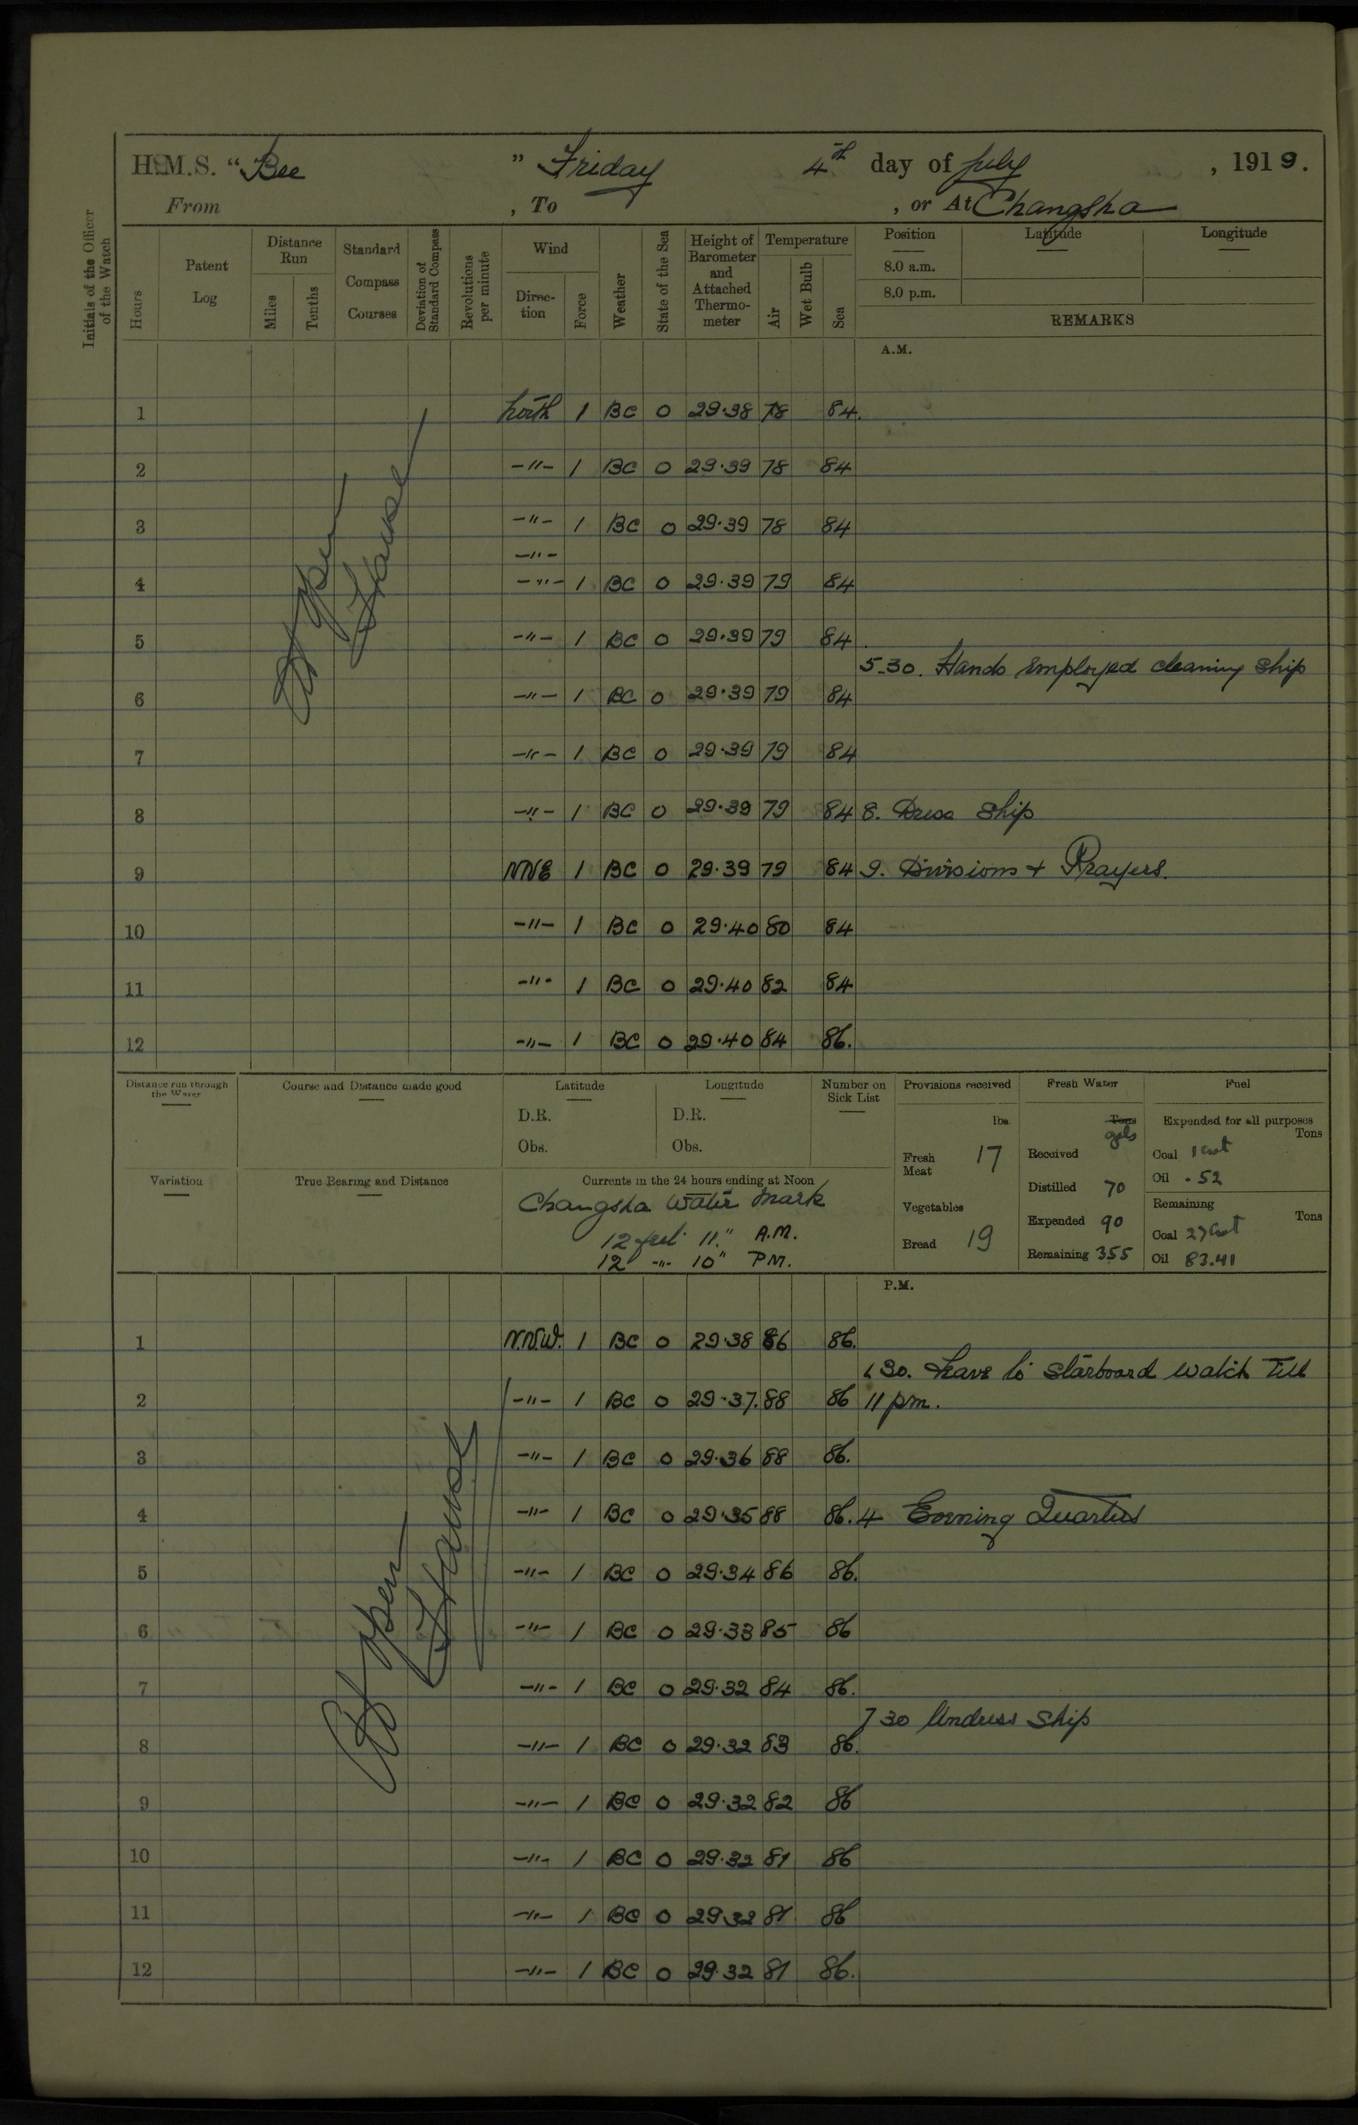 H.M.S. "Bee" Friday 4th day of July, 1919.
From , To , or At Changsha
Initials of the Officer of the Watch
Hours
Patent Log
Distance Run
Miles
Tenths
Standard Compass Courses
Deviation of Standard Compass
Revolutions per minute
Wind
Direction
Force
Weather
State of the Sea
Height of Barometer and Attached Thermometer
Temperature
Air
Wet Bulb
Sea
Position
Latitude
Longitude
8.0 a.m.
8.0 p.m.
REMARKS
A.M.
1 North 1 BC 0 29.38 78 84.
2 -"- 1 BC 0 29.39 78 84
3 -"- 1 BC 0 29.39 78 84
-"-
4 -"- 1 BC 0 29.39 79 84
5 -"- 1 BC 0 29.39 79 84
5-30. Hands Employed cleaning Ship
6 -"- 1 BC 0 29.39 79 84
7 -"- 1 BC 0 29.39 79 84
8 -"- 1 BC 0 29.39 79 84 8. Dress Ship
9 NNE 1 BC 0 29.39 79 84 9. Divisions + Prayers.
10 -"- 1 BC 0 29.40 80 84
11 -"- 1 BC 0 29.40 82 84
12 -"- 1 BC 0 29.40 84 86.
At Open
Hause
Distance run through the Water
Course and Distance made good
Latitude
D.R.
Obs.
Longitude
D.R.
Obs.
Number on Sick List
Provisions received
lbs.
Fresh Meat 17
Vegetables
Bread 19
Fresh Water
Tons
gals
Received
Distilled 70
Expended 90
Remaining 355
Fuel
Expended for all purposes
Tons
Coal 1 cwt
Oil .52
Remaining
Tons
Coal 27 cwt
Oil 83.41
Variation
True Bearing and Distance
Currents in the 24 hours ending at Noon
Changsha Water Mark
12 feet 11" A.M.
12 -"- 10" P.M.
P.M.
1 N.N.W. 1 BC 0 29.38 86 86.
1 30. Leave to Starboard Watch Till
2 -"- 1 BC 0 29.37. 88 86 11 pm.
3 -"- 1 BC 0 29.36 88 86.
4 -"- 1 BC 0 29.35 88 86. 4 Evening Quarters
5 -"- 1 BC 0 29.34 86 86.
6 -"- 1 BC 0 29.33 85 86
7 -"- 1 BC 0 29.32 84 86.
7 30 Undress Ship
8 -"- 1 BC 0 29.32 83 86.
9 -"- 1 BC 0 29.32 82 86
10 -"- 1 BC 0 29.32 81 86
11 -"- 1 BC 0 29.32 81 86
12 -"- 1 BC 0 29.32 81 86.
At Open
Hause